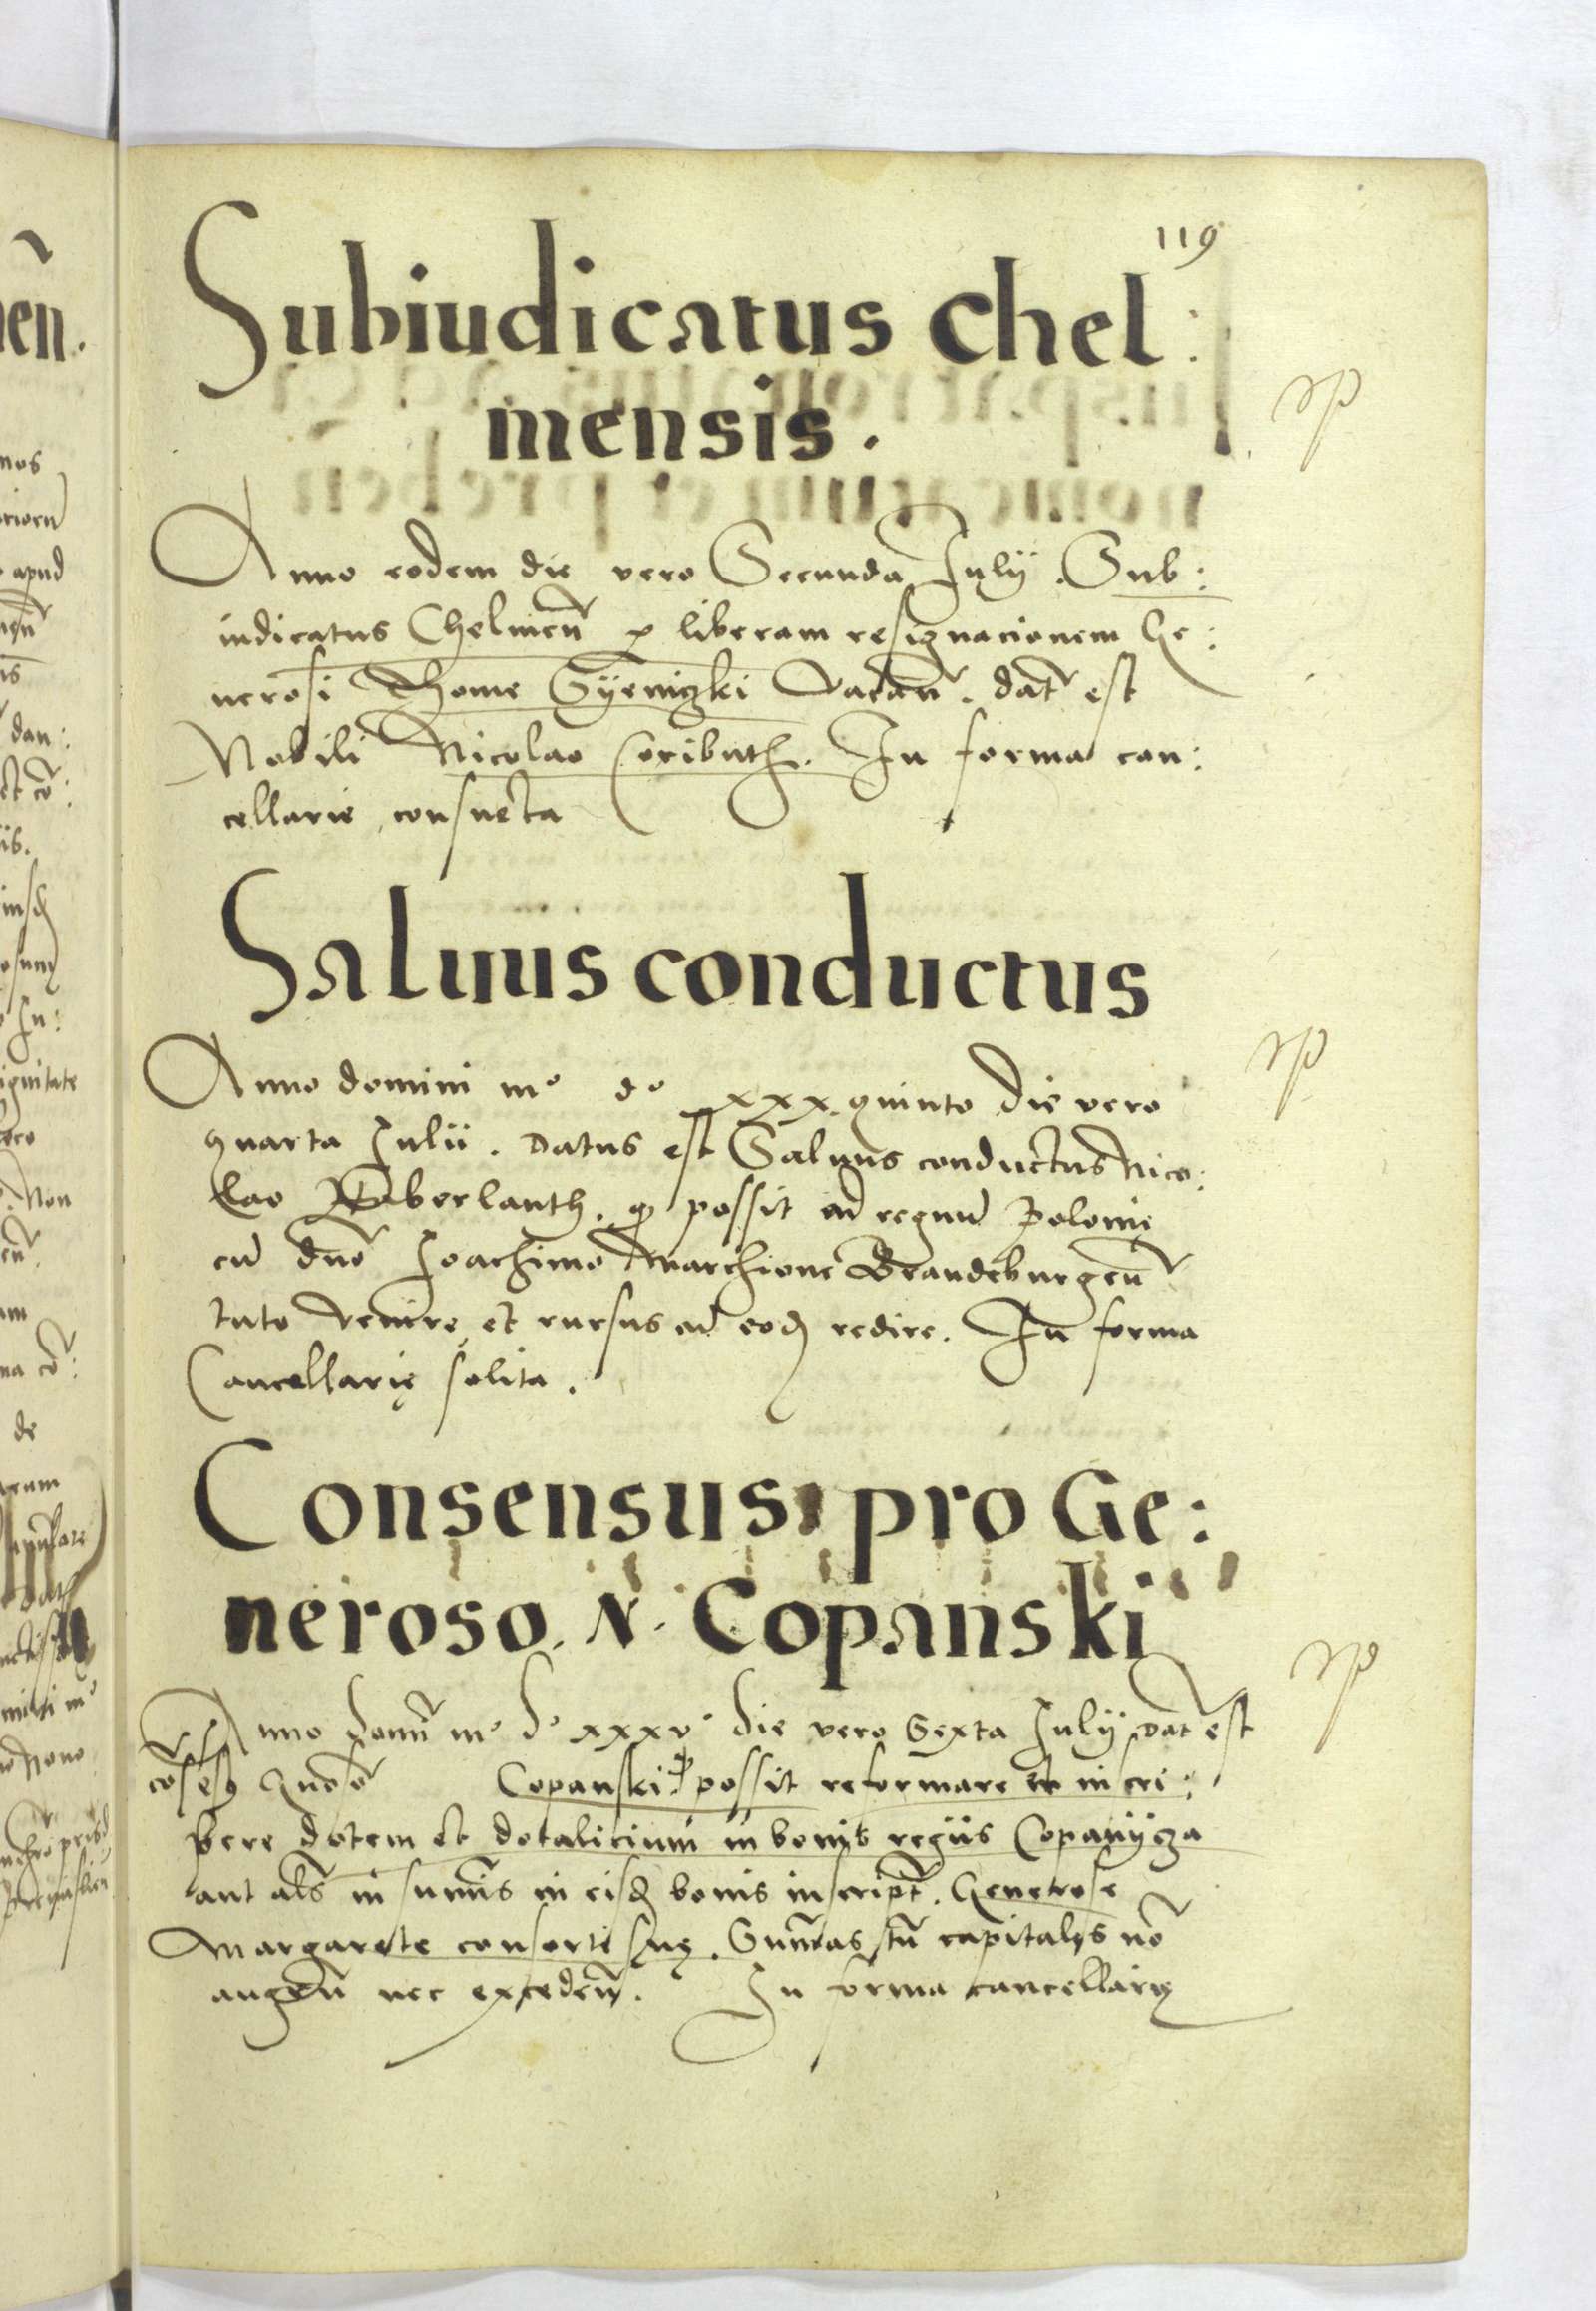 119
Subiudicatus chel:
mensis.
Anno eodem die vero Secunda Julÿ. Sub:
iudicatus Chelmeñ ꝑ liberam resignacionem Ge:
nerosi Thome Syeniczki Vacañ. dat̃ est
Nobili Nicolao Coributh. In forma can:
cellarie consueta
Saluus conductus
Anno domini mº dº xxx quinto die vero
quarta Julii. Datus est Saluus conductus Nico:
lao Haberlanth. ꝙ possit ad regnũ Polonię
cũ dño Joachimo Marchione Brandeburgeñ
tuto venire et rursus ad eoꝺ redire. In forma
Cancellarię solita.
Consensus pro Ge:
neroso. N. Copanski
Anno domĩ mº dº xxxvº die vero Sexta Julÿ Dat̃ est
cõsẽsꝯ Gnõso Copanski ꝙ possit reformare et inscri:
bere dotem et dotalicium in bonis regiis Copanÿcza
aut als̃ in sum̃is in eisꝺ bonis inscript̃. Generose
Margarete consorti suę. Sum̃as tñ capitales nõ
augeñ nec excedeñ. In forma cancellarię